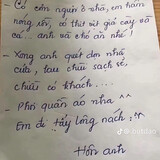 - Có cơm nguội ở nhà, em hâm
nóng rồi, có thịt với giò cây và
cá... anh và chó ăn nhé!
- Xong anh quét dọn nhà
cửa, lau chùi sạch sẽ,
chiều có khách....
- Phơi quần áo nha ^^
Em đi tẩy lông nách :"
Hôn anh